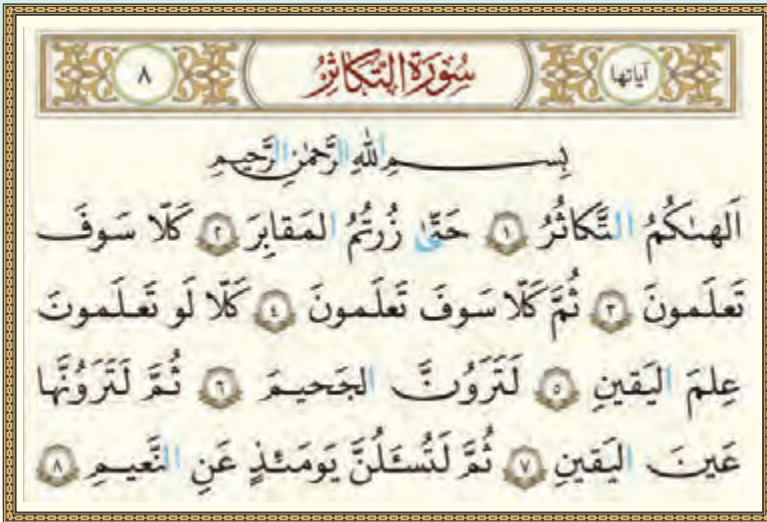 آیاتها سُورَةُ التَّکاثُرِ ٨
بِسمِ اللّٰهِ الرَّحمٰنِ الرَّحیمِ
اَلهىٰکُمُ التَّکاثُرُ ١ حَتّىٰ زُرتُمُ المَقابِرَ ٢ کَلّا سَوفَ
تَعلَمونَ ٣ ثُمَّ کَلّا سَوفَ تَعلَمونَ ٤ کَلّا لَو تَعلَمونَ
عِلمَ الیَقینِ ٥ لَتَرَوُنَّ الجَحیمَ ٦ ثُمَّ لَتَرَوُنَّها
عَینَ الیَقینِ ٧ ثُمَّ لَتُسئَلُنَّ یَومَئِذٍ عَنِ النَّعیمِ ٨